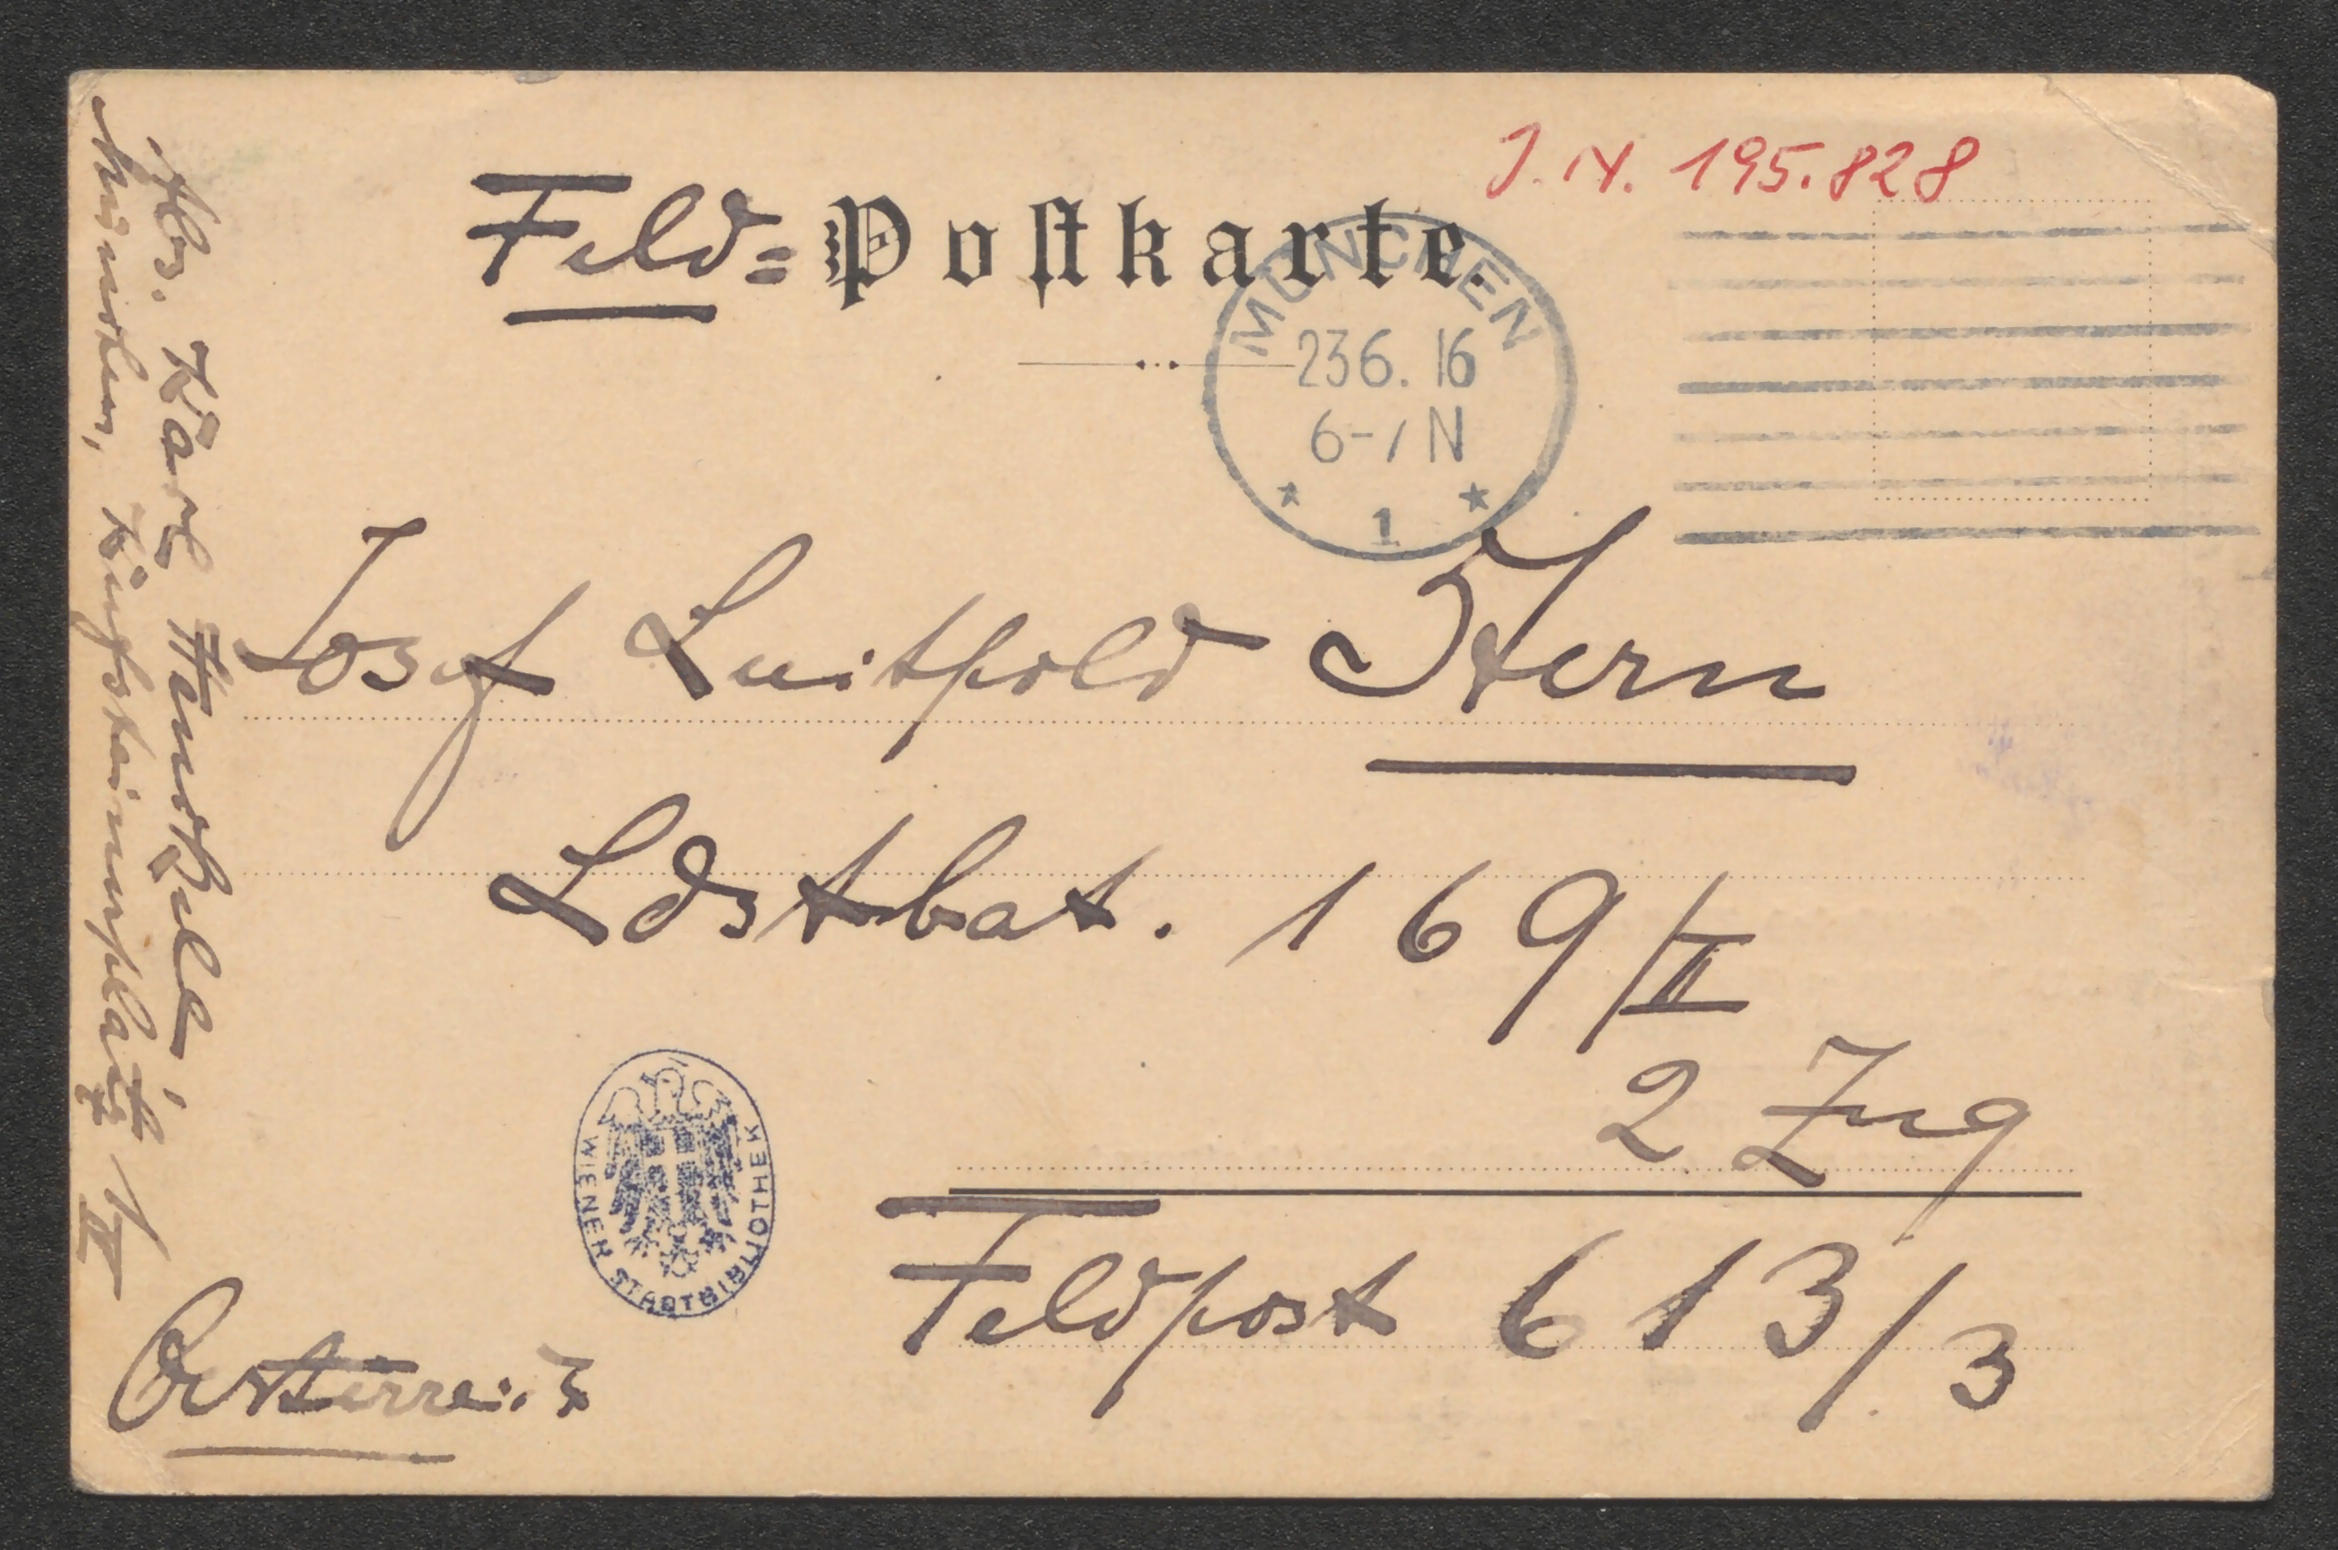 J. N. 195.828
Feld= Postkarte.
MÜNCHEN
23 6. 16
6-7 N
1
Josef Luitpold Stern
Ldstbat. 169/II
2 Zug
Feldpost 613/3
Oesterreich
WIENER STADTBIBLIOTHEK
Abs. Karl Henckell,
München, Kufsteinerplatz 1/IV